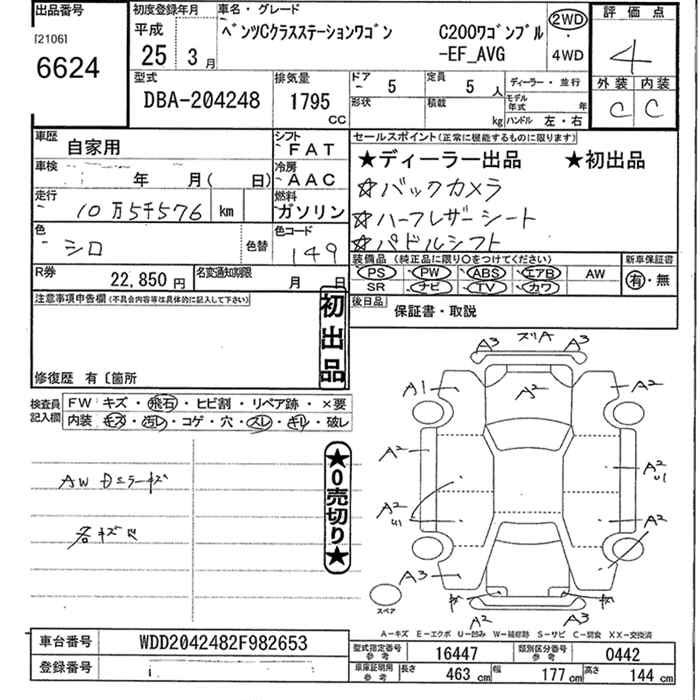 出品番号
[2106]
6624
初度登録年月
平成
25年 3月
車名・グレード
ベンツCクラスステーションワゴン C200ワゴンブル
-EF_AVG
2WD
・
4WD
評価点
4
外装 内装
C C
型式
DBA-204248
排気量
1795
CC
ドア
- 5
定員
5人
形状
積載
kg
ディーラー・並行
モデル年式 年
ハンドル 左・右
車歴
自家用
シフト
FAT
車検
年 月( 日)
冷房
AAC
走行
10万5千576 km
燃料
ガソリン
色
シロ
色替
色コード
149
R券
22,850円
名変通知期限
月 日
セールスポイント(正常に機能するものに限ります)
★ディーラー出品 ★初出品
☆バックカメラ
☆ハーフレザーシート
☆パドルシフト
装備品 (純正品に限り○をつけてください)
PS PW ABS エアB AW
SR ナビ TV カワ
新車保証書
有・無
後日品
保証書・取説
注意事項申告欄(不具合内容等は具体的に記入して下さい)
修復歴 有〔箇所
初出品
検査員
記入欄
FW キズ・飛石・ヒビ割・リペア跡・×要
内装 キズ・汚レ・コゲ・穴・スレ・キレ・破レ
AW Dミラーキズ
各キズ凹
★0売切り★
A3 スリA A3
A1 A2 A2
A2 A2
U1
A2
U1 A2
A3
A2 A3
スペア
A-キズ E-エクボ U-凹み W-補修跡 S-サビ C-腐食 XX-交換済
車台番号
WDD2042482F982653
登録番号
型式指定番号
参考
16447
類別区分番号
参考
0442
車庫証明用
参考
長さ 463 cm 幅 177 cm 高さ 144 cm